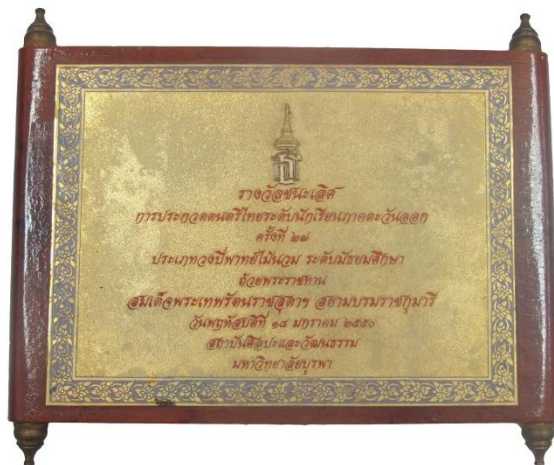 รางวัลชนะเลิศ
การประกวดดนตรีไทยระดับนักเรียนภาคตะวันออก
ครั้งที่ ๒๗
ประเภทวงปี่พาทย์ไม้นวม ระดับมัธยมศึกษา
ถ้วยพระราชทาน
สมเด็จพระเทพรัตนราชสุดาฯ สยามบรมราชกุมารี
วันพฤหัสบดีที่ ๑๘ มกราคม ๒๕๕๐
สถาบันศิลปะและวัฒนธรรม
มหาวิทยาลัยบูรพา